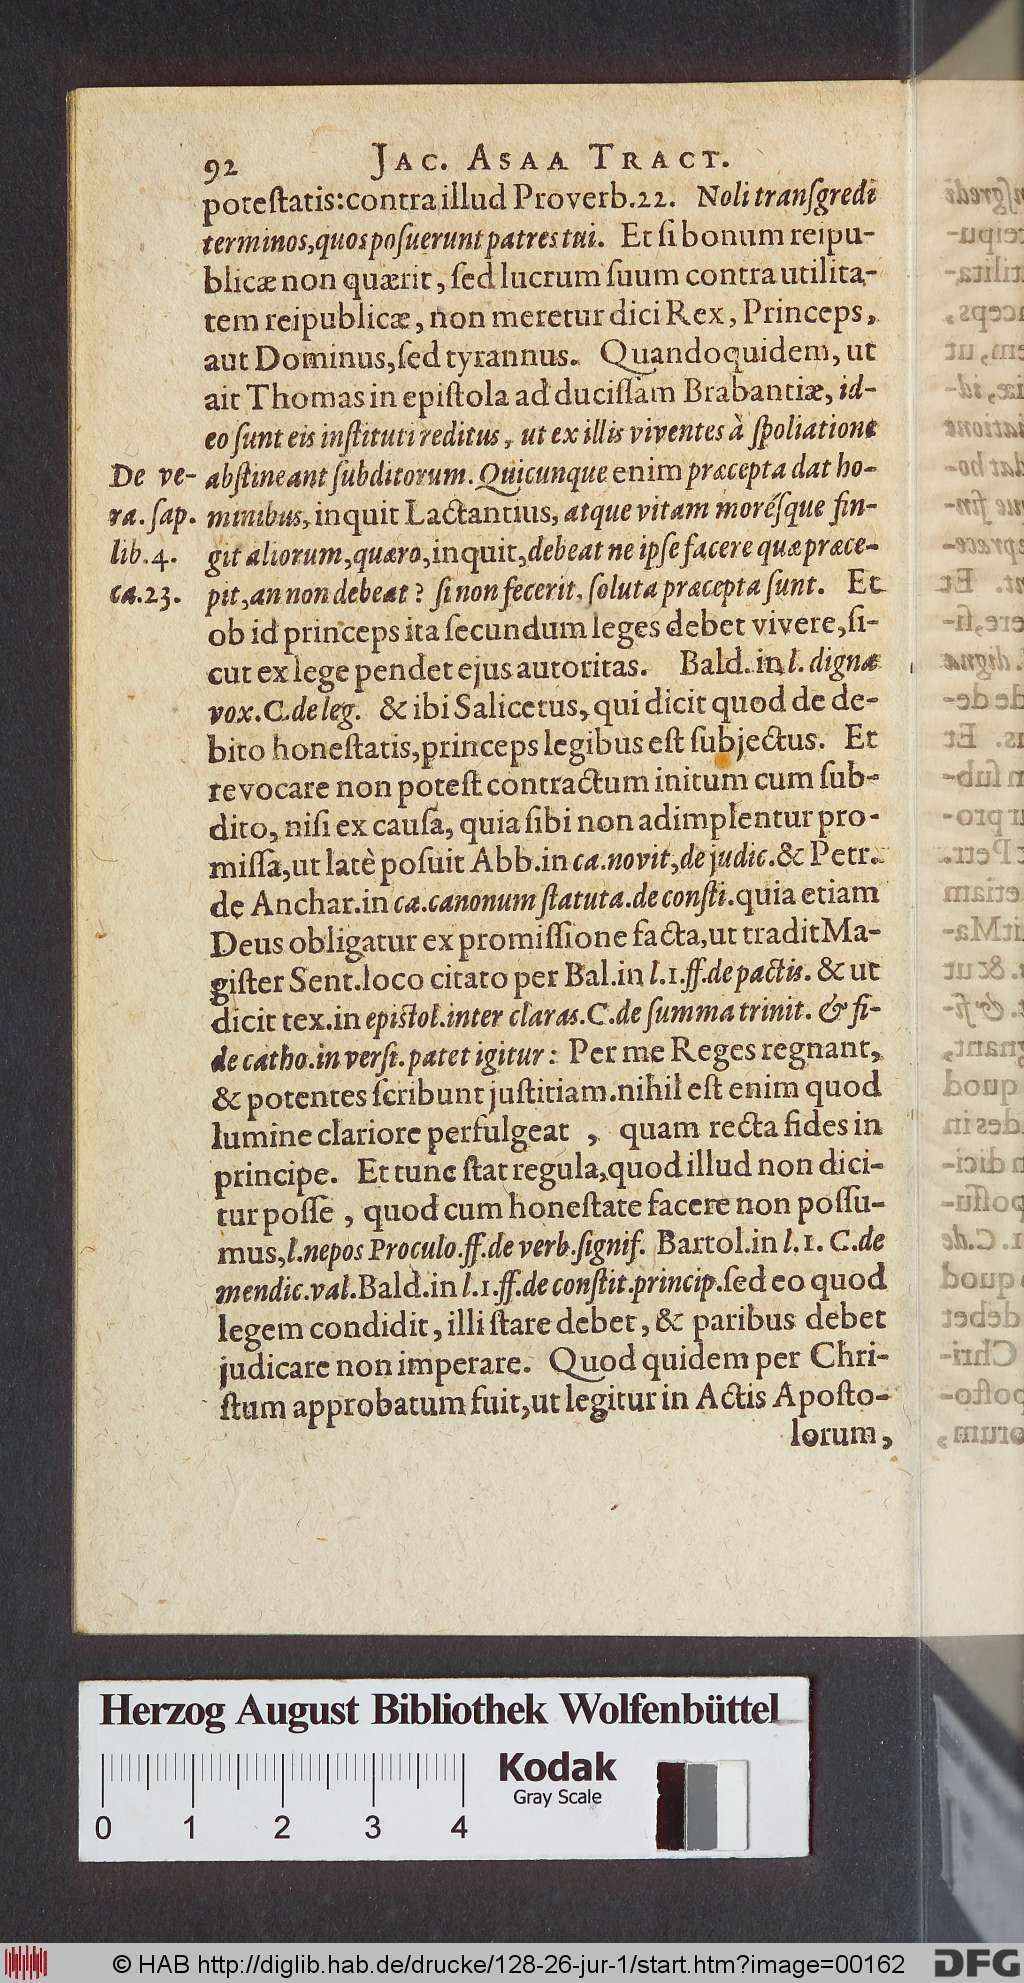 92 JAC. ASAA TRACT.
poteſtatis:contra illud Proverb.22. Noli tranſgredi
terminos,quos poſuerunt patres tui. Et ſi bonum reipu-
blicæ non quærit, ſed lucrum ſuum contra utilita-
tem reipublicæ, non meretur dici Rex, Princeps,
aut Dominus,ſed tyrannus. Quandoquidem, ut
ait Thomas in epiſtola ad duciſſam Brabantiæ, id-
eo ſunt eis inſtituti reditus, ut ex illis viventes à ſpoliatione
abſtineant ſubditorum. Quicunque enim præcepta dat ho-
minibus, inquit Lactantius, atque vitam moréſque fin-
git aliorum,quæro,inquit,debeat ne ipſe facere quæ præce-
pit,an non debeat? ſi non fecerit, ſoluta præcepta ſunt. Et
De ve-
ra. ſap.
lib.4.
ca.23.
ob id princeps ita ſecundum leges debet vivere,ſi-
cut ex lege pendet ejus autoritas. Bald. in l. dignæ
vox.C.de leg. & ibi Salicetus, qui dicit quod de de-
bito honeſtatis,princeps legibus eſt ſubjectus. Et
revocare non poteſt contractum initum cum ſub-
dito, niſi ex cauſa, quia ſibi non adimplentur pro-
miſſa,ut latè poſuit Abb.in ca.novit,de judic.& Petr.
de Anchar.in ca.canonum ſtatuta.de conſti.quia etiam
Deus obligatur ex promiſſione facta,ut tradit Ma-
giſter Sent.loco citato per Bal.in l.1.ff.de pactis. & ut
dicit tex.in epiſtol.inter claras.C.de ſumma trinit. & fi-
de catho.in verſi.patet igitur: Per me Reges regnant,
& potentes ſcribunt juſtitiam.nihil eſt enim quod
lumine clariore perfulgeat , quam recta fides in
principe. Et tunc ſtat regula,quod illud non dici-
tur poſſe , quod cum honeſtate facere non poſſu-
mus,l.nepos Proculo.ff.de verb.ſignif. Bartol.in l.1. C.de
mendic.val.Bald.in l.1.ff.de conſtit.princip.ſed eo quod
legem condidit, illi ſtare debet, & paribus debet
judicare non imperare. Quod quidem per Chri-
ſtum approbatum fuit,ut legitur in Actis Apoſto-
lorum,
Herzog August Bibliothek Wolfenbüttel
Kodak
Gray Scale
0 1 2 3 4
© HAB http://diglib.hab.de/drucke/128-26-jur-1/start.htm?image=00162
DFG